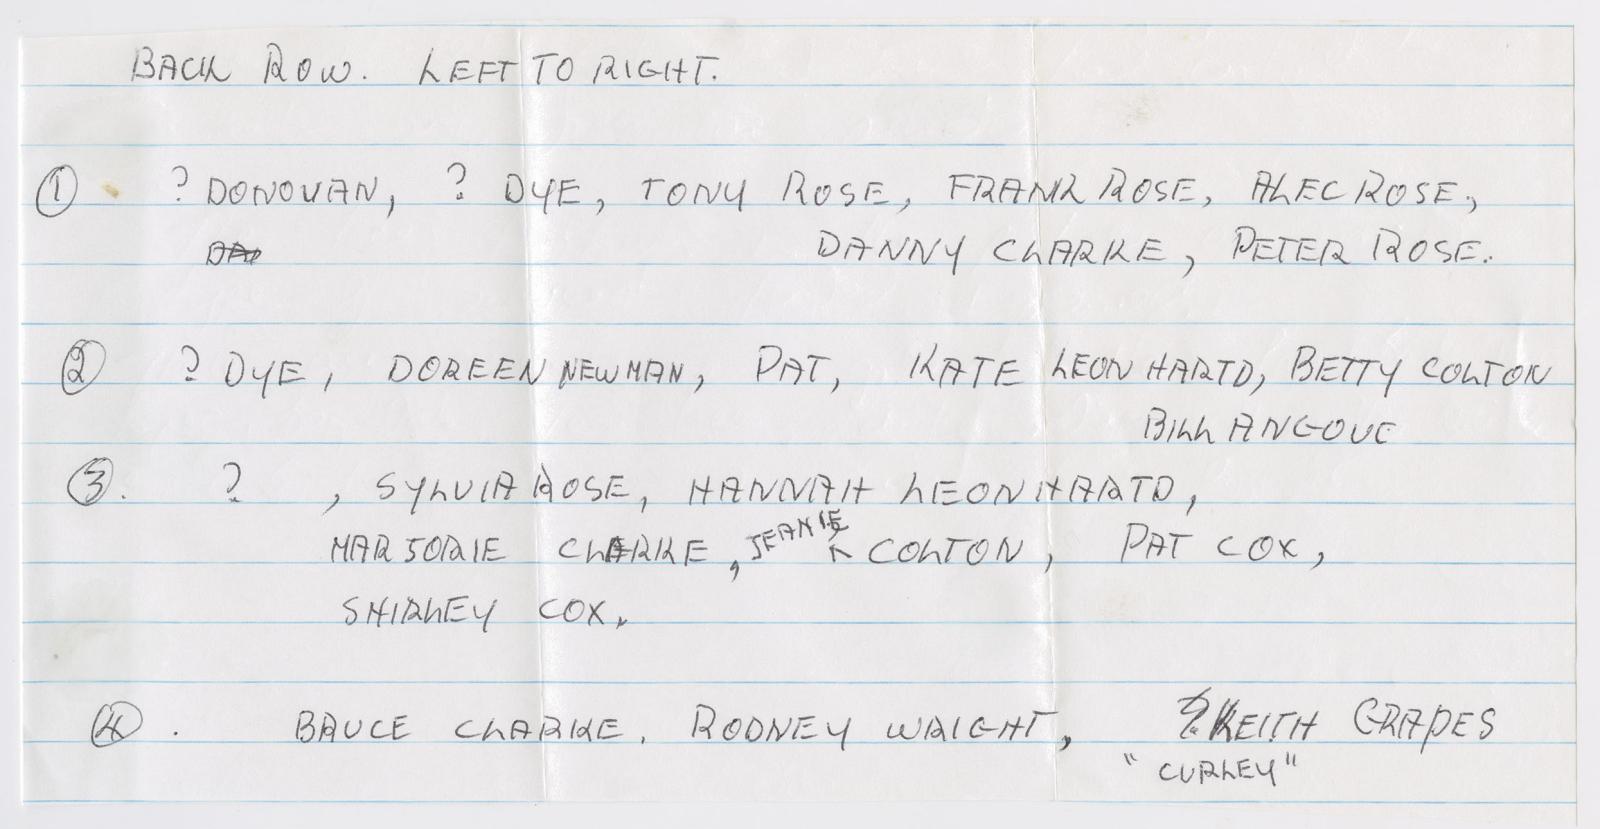 BACK ROW. LEFT TO RIGHT.
① ? DONOVAN, ? DYE, TONY ROSE, FRANK ROSE, ALEC ROSE.,
DANNY CLARKE, PETER ROSE.
② ? DYE, DOREEN NEWMAN, PAT, KATE LEONHARTD, BETTY COLTON
BILL ANGOVE
③. ? , SYLVIA ROSE, HANNAH LEONHARTD,
MARJORIE CLARKE, JEANIE COLTON, PAT COX,
SHIRLEY COX.
④. BRUCE CLARKE. RODNEY WRIGHT, ? KEITH GRAPES
"CURLEY"